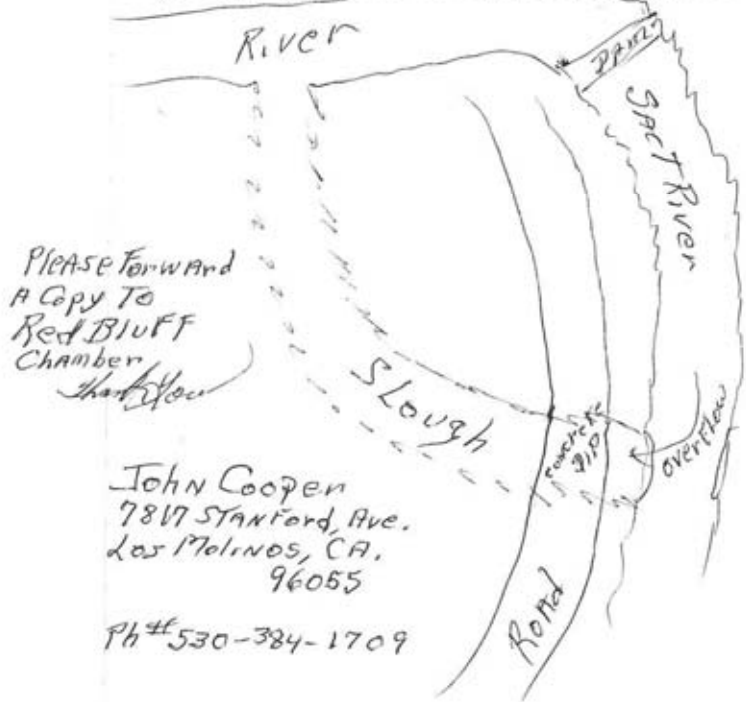 River
DAM
SACT River
Please Forward
A Copy To
Red Bluff
Chamber
Thank You
Slough
concrete
DIP
overflow
John Cooper
7817 Stanford, Ave.
Los Molinos, CA.
96055
Ph# 530-384-1709
Road